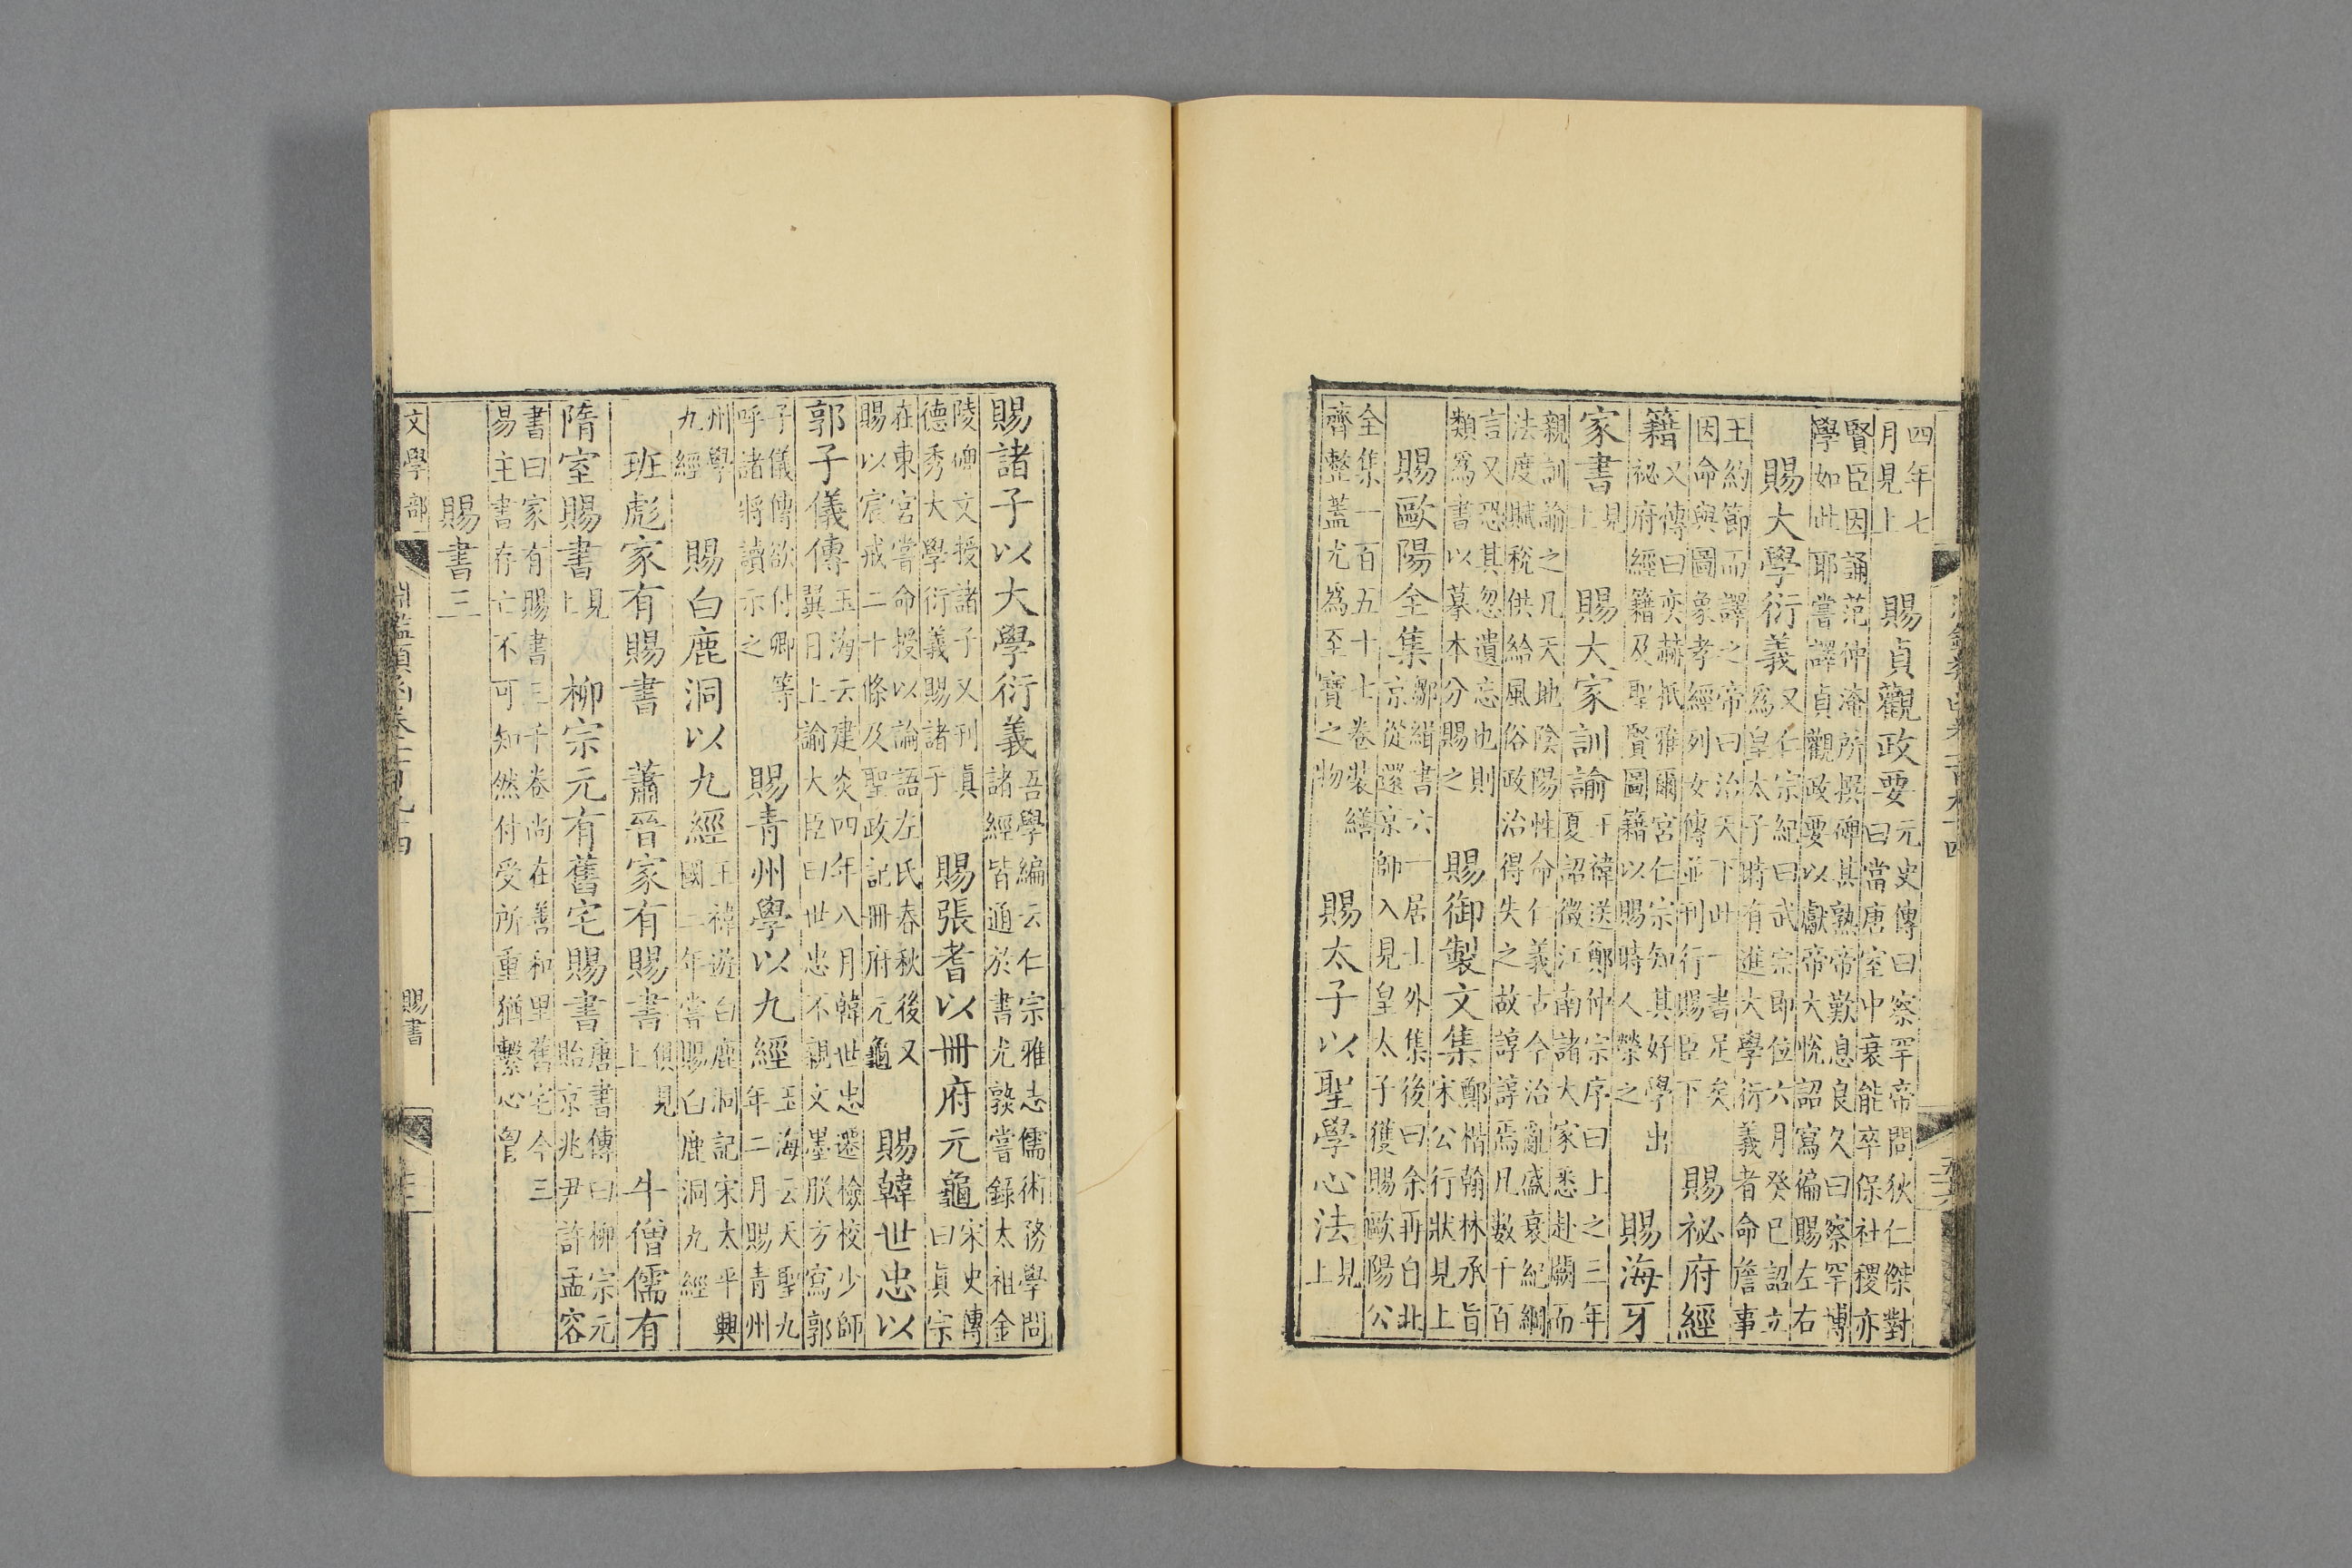 四年七月見上　賜貞觀政要元史傳曰察罕帝問狄仁傑對曰當唐室中衰能卒保社稷亦
賢臣因誦范仲淹所撰碑其熟帝歎息良久曰察罕博學如此耶嘗譯貞觀政要以獻帝大悅詔寫徧賜左右
賜大學衍義又仁宗紀曰武宗即位六月癸巳詔立爲皇太子時有進大學衍義者命詹事
王約節而譯之帝曰治天下此一書足矣因命與圖象孝經列女傳並刊行賜臣下　賜祕府經
籍又傳曰奕赫抵雅爾宮仁宗知其好學出祕府經籍及聖賢圖籍以賜時人榮之　賜海牙
家書見上　賜大家訓諭王禕送鄭仲宗序曰上之三年夏詔徵江南諸大家悉赴闕而
親訓諭之凡天地陰陽性命仁義古今治亂盛衰紀綱法度賦稅供給風俗政治得失之故諄諄焉凡數千百
言又恐其忽遺忘也則類爲書以摹本分賜之　賜御製文集鄭楷翰林承旨宋公行狀見上
賜歐陽全集鄒緝書六一居士外集後曰余再自北京從還京師入見皇太子獲賜歐陽公
全集一百五十七卷裝繕齊整蓋尤爲至寶之物　賜太子以聖學心法見上
賜諸子以大學衍義吾學編云仁宗雅志儒術務學問諸經皆通於書尤敦嘗錄太祖金
陵文授諸子又刊眞德秀大學衍義賜諸子　賜張耆以冊府元龜宋史傳曰眞宗
在東宮嘗命授以論語左氏春秋後又賜以宸戒二十條及聖政記冊府元龜　賜韓世忠以
郭子儀傳玉海云建炎四年八月韓世忠遷檢校少師翼日上諭大臣曰世忠不親文墨朕方寫郭
子儀傳欲付卿等呼諸將讀示之　賜青州學以九經玉海云天聖九年二月賜青州
州學九經　賜白鹿洞以九經王禕遊白鹿洞記宋太平興國二年嘗賜白鹿洞九經
班彪家有賜書　蕭晉家有賜書俱見上　牛僧儒有
隋室賜書見上　柳宗元有舊宅賜書唐書傳曰柳宗元貽京兆尹許孟容
書曰家有賜書三千卷尚在善和里舊宅今三易主書存亡不可知然付受所重猶繫心曾
賜書三
文學部　淵鑑類函卷一百九十四　賜書